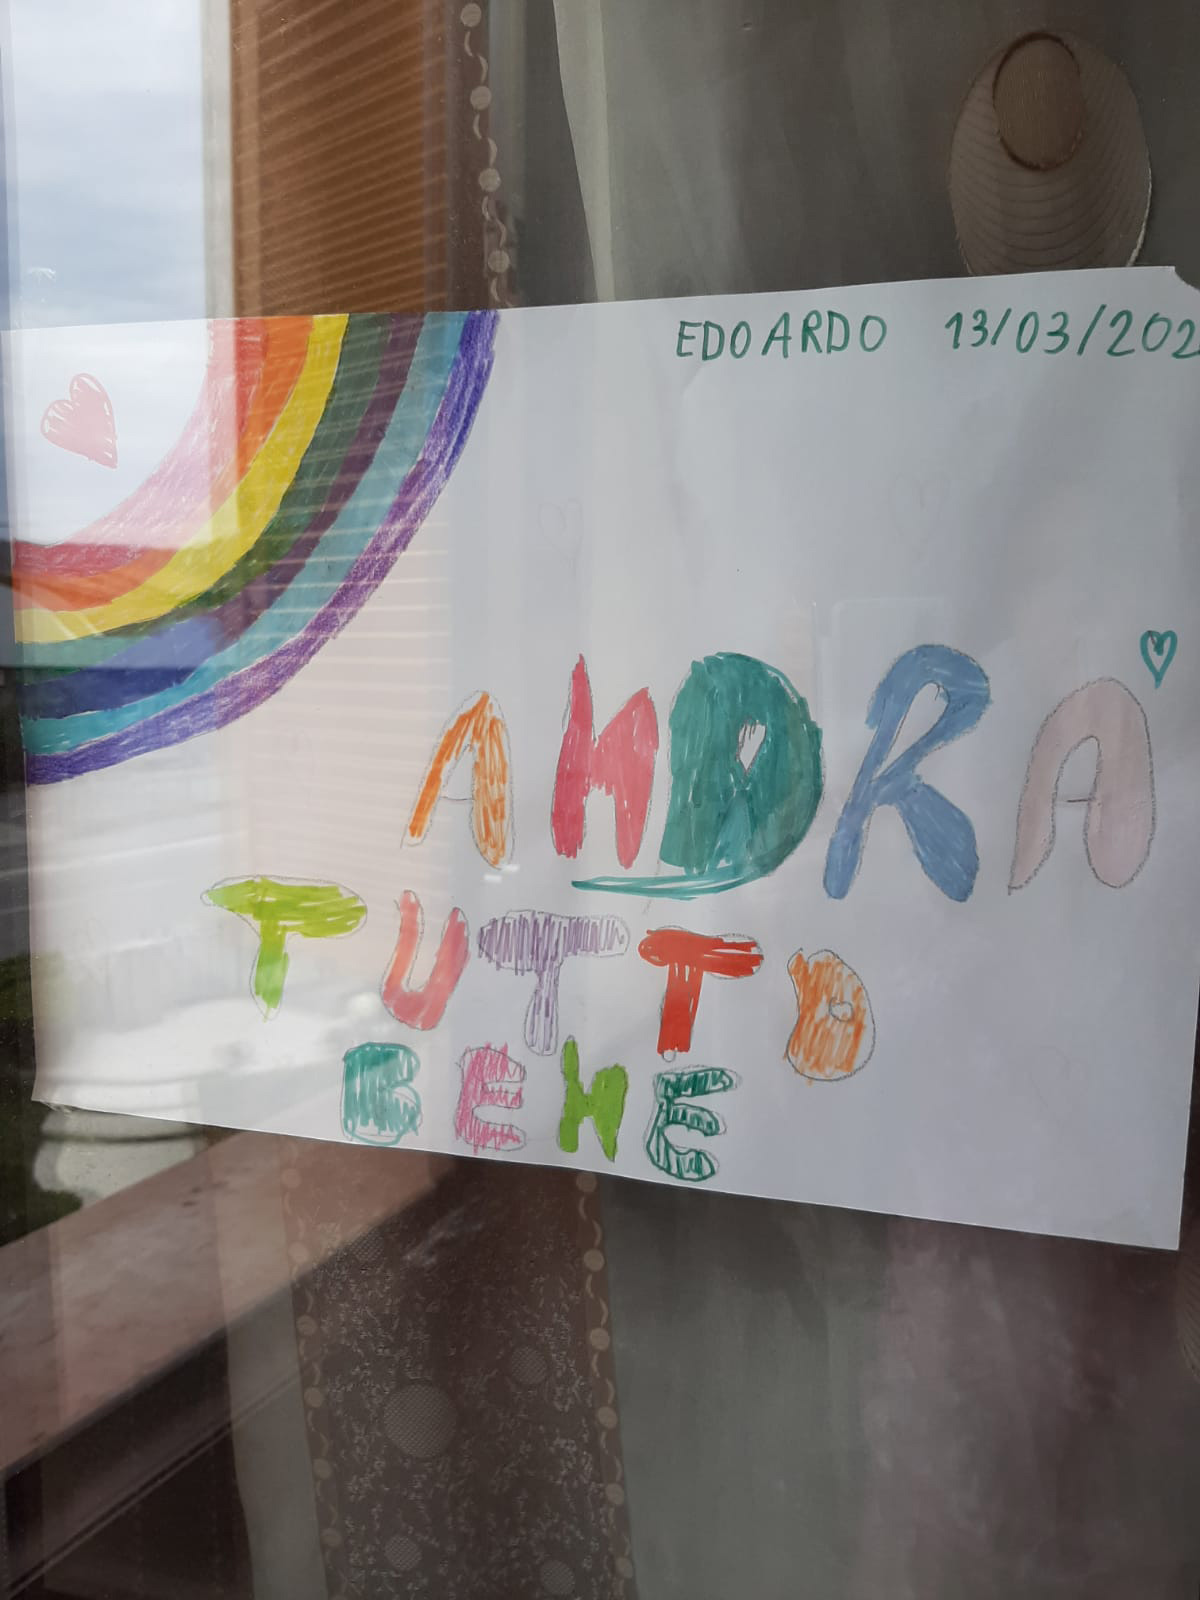 EDOARDO 13/03/202
ANDRA
TUTTO
BENE